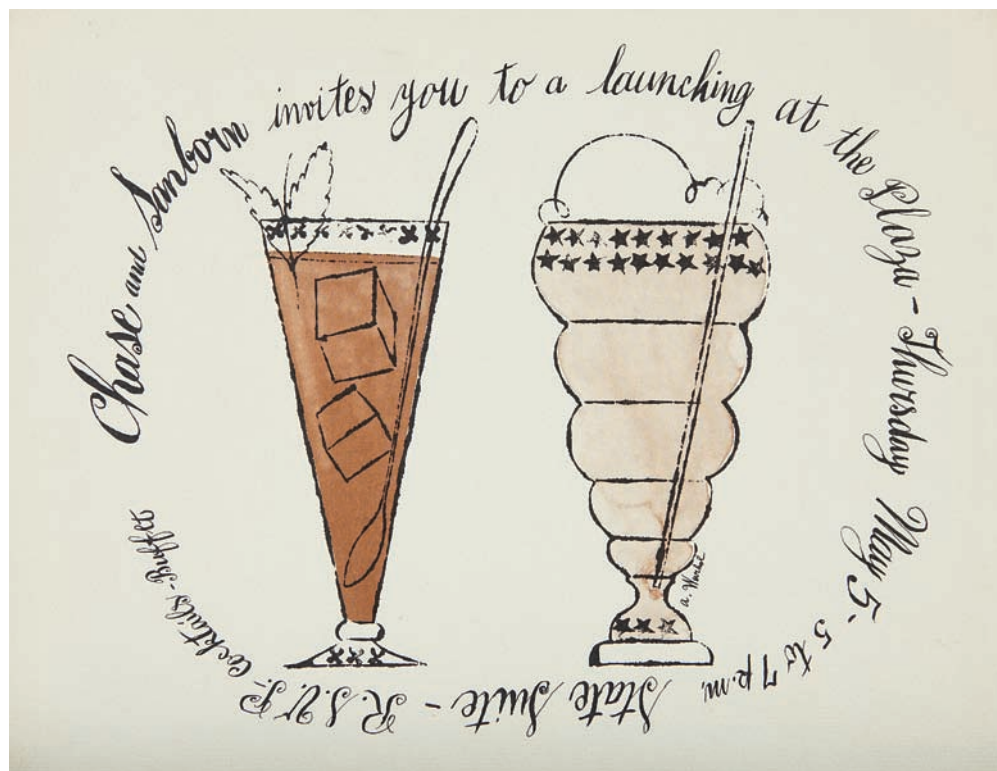 Chase and Sanborn invites you to a launching at the Plaza - Thursday May 5 - 5 to 7 p.m. State Suite - R.S.V.P. Cocktails - Buffet
a. Warhol